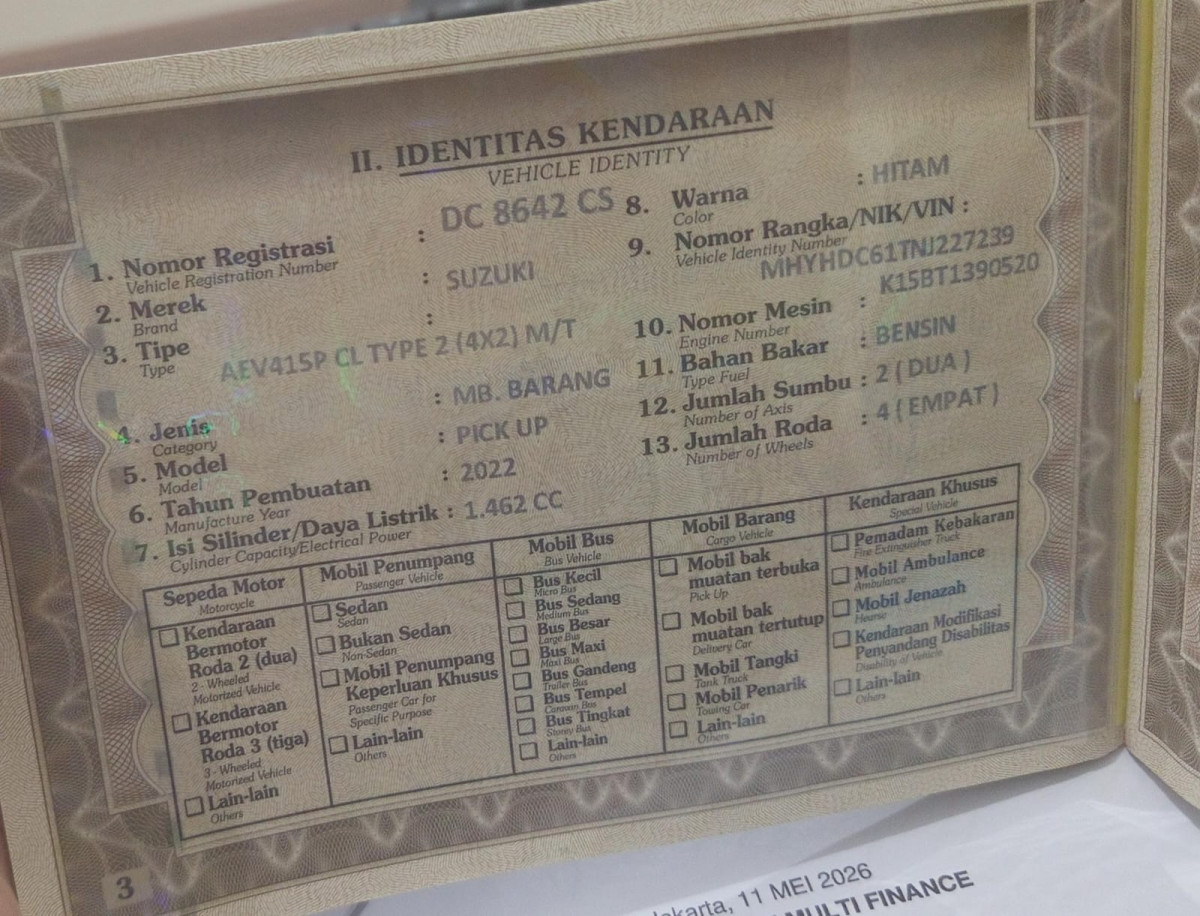 II. IDENTITAS KENDARAAN
VEHICLE IDENTITY
1. Nomor Registrasi : DC 8642 CS
Vehicle Registration Number
2. Merek : SUZUKI
Brand
3. Tipe :
Type
AEV415P CL TYPE 2 (4X2) M/T
4. Jenis : MB. BARANG
Category
5. Model : PICK UP
Model
6. Tahun Pembuatan : 2022
Manufacture Year
7. Isi Silinder/Daya Listrik : 1.462 CC
Cylinder Capacity/Electrical Power
8. Warna : HITAM
Color
9. Nomor Rangka/NIK/VIN :
Vehicle Identity Number
MHYHDC61TNJ227239
10. Nomor Mesin : K15BT1390520
Engine Number
11. Bahan Bakar : BENSIN
Type Fuel
12. Jumlah Sumbu : 2 ( DUA )
Number of Axis
13. Jumlah Roda : 4 ( EMPAT )
Number of Wheels
Sepeda Motor
Motorcycle
Kendaraan
Bermotor
Roda 2 (dua)
2 - Wheeled
Motorized Vehicle
Kendaraan
Bermotor
Roda 3 (tiga)
3 - Wheeled
Motorized Vehicle
Lain-lain
Others
Mobil Penumpang
Passenger Vehicle
Sedan
Sedan
Bukan Sedan
Non-Sedan
Mobil Penumpang
Keperluan Khusus
Passenger Car for
Specific Purpose
Lain-lain
Others
Mobil Bus
Bus Vehicle
Bus Kecil
Micro Bus
Bus Sedang
Medium Bus
Bus Besar
Large Bus
Bus Maxi
Maxi Bus
Bus Gandeng
Trailer Bus
Bus Tempel
Caravan Bus
Bus Tingkat
Storey Bus
Lain-lain
Others
Mobil Barang
Cargo Vehicle
Mobil bak
muatan terbuka
Pick Up
Mobil bak
muatan tertutup
Delivery Car
Mobil Tangki
Tank Truck
Mobil Penarik
Towing Car
Lain-lain
Others
Kendaraan Khusus
Special Vehicle
Pemadam Kebakaran
Fire Extinguisher Truck
Mobil Ambulance
Ambulance
Mobil Jenazah
Hearse
Kendaraan Modifikasi
Penyandang Disabilitas
Disability of Vehicle
Lain-lain
Others
3
akarta, 11 MEI 2026
MULTI FINANCE